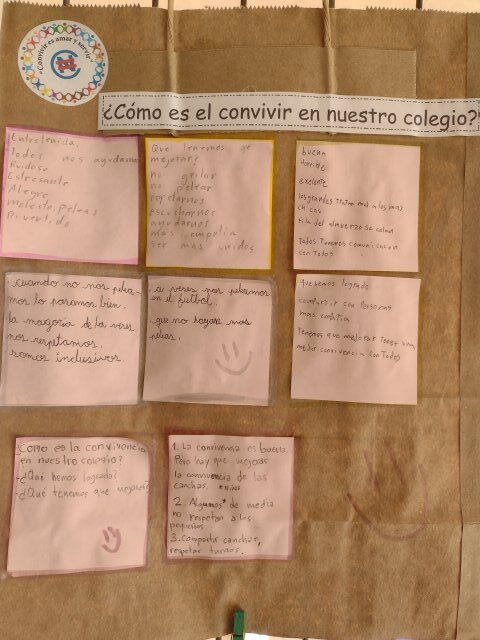 "Convivir es amar y servir"
¿Cómo es el convivir en nuestro colegio?
Entretenida
Todos nos ayudamos
Ruidosa
Estresante
Alegre
molesta, Peleas
Divertido
Que tenemos qe
mejorar?
no gritar
no pelear
respetarnos
escucharnos
ayudarnos
mas empatia
ser mas unidos
buena
horrible
exelente
los grandes tratan mal a los mas
chicos
fila del almuerzo se colan
Todos Tenemos comunicacion
con Todos
. cuando no nos pelea-
mos lo pasamos bien.
. la mayoría de la veces
nos respetamos.
. somos inclusivos.
. a veces nos peleamos
en el futbol.
. que no hayan mas
peleas.
que hemos logrado
compartir con Personas
mas empatia
Tenemos que mejorar Tener una
mejor convivencia con Todos
Cómo es la convivencia
en nuestro colegio?
-¿Qué hemos logrado?
-¿Qué tenemos que mejorar?
1. La convivencia es buena.
Pero hay que mejorar
la convivencia de las
canchas.
2. Algunos de media
no respetan a los
pequeños
3. Compartir canchas,
respetar turnos.